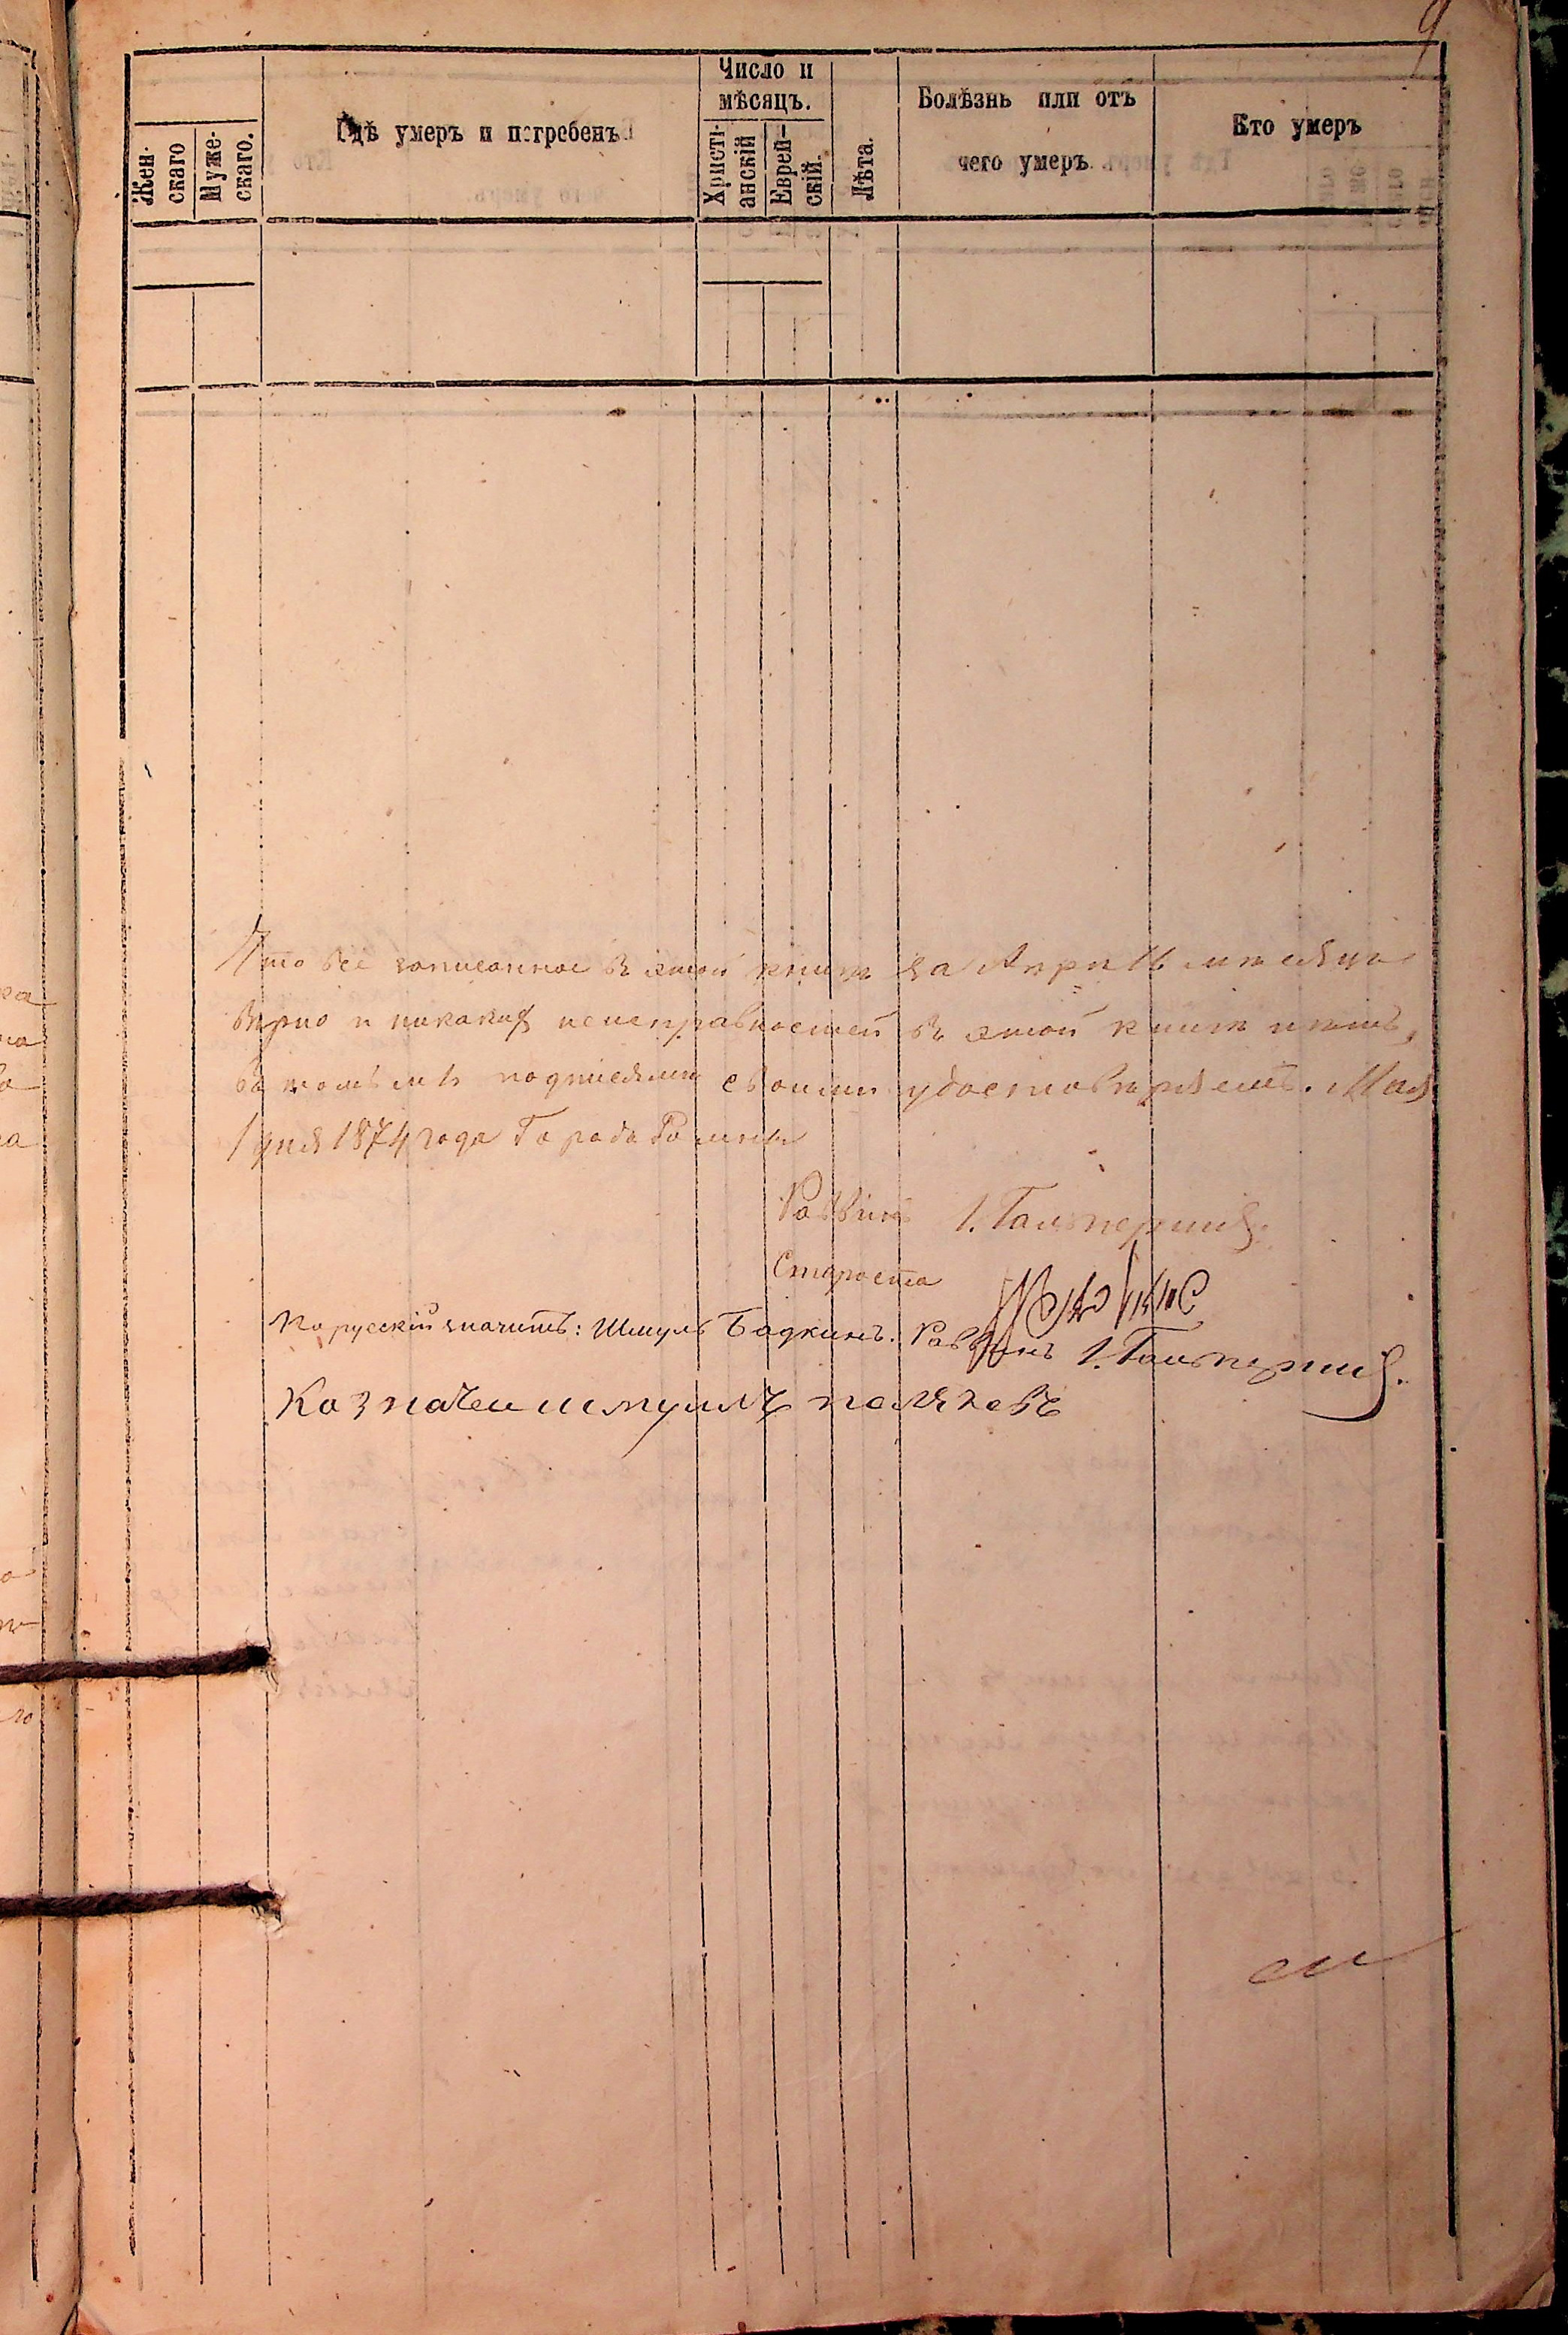 9
Женскаго
Мужескаго.
Гдѣ умеръ и погребенъ
Число и мѣсяцъ.
Христіанскій
Еврейскій.
Лѣта.
Болѣзнь или отъ
чего умеръ
Кто умеръ
Что всё записанное въ этой книгѣ за Апрѣль мѣсяцъ
вѣрно и никакихъ неисправностей въ этой книгѣ нѣтъ,
въ томъ мы подписями своими удостовѣряемъ. Мая
1 дня 1874 года Города Ромны
Раввинъ І. Гальперинъ
Староста
По русскій значитъ: Шмуль Бадкинъ. Раввинъ І. Гальперинъ.
Казначеи